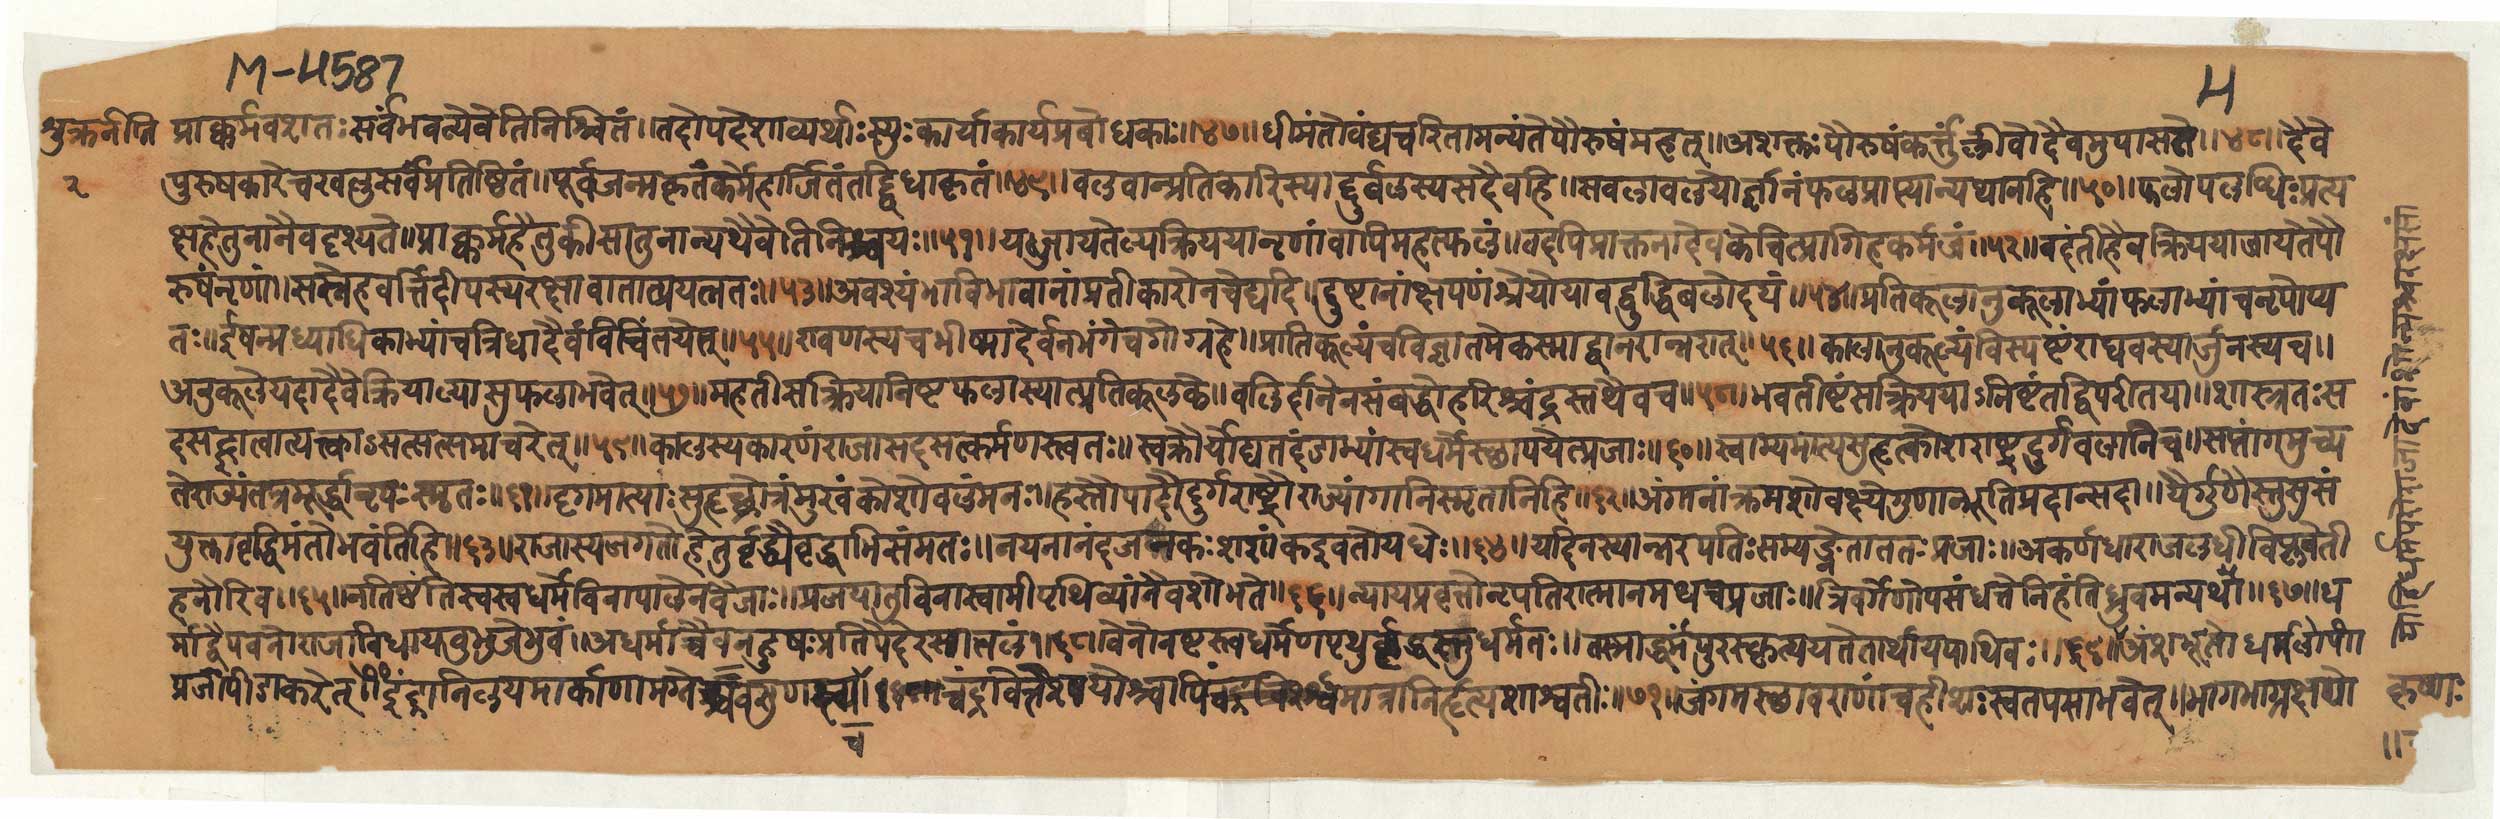 M-4587
4
शुक्रनीति
२
प्राक्कर्मवशातः सर्वंभवत्येवेतिनिश्चितं॥तदोपदेशाव्यर्थाःस्युःकार्याकार्यप्रबोधकाः॥४७॥धीमंतोवंद्यचरितामन्यंतेपौरुषंमहत्॥अशक्ताःपौरुषंकर्त्तुंक्लीबोदैवमुपासते॥४८॥दैवे
पुरुषकारेचखलुसर्वंप्रतिष्ठितं॥पूर्वजन्मकृतंकर्मेहार्जितंतद्द्विधाकृतं॥४९॥बलवान्प्रतिकारिस्याद्दुर्बलस्यसदैवहि॥सबलाबलयोर्ज्ञानंफलप्राप्त्यान्यथानहि॥५०॥फलोपलब्धिःप्रत्य
क्षहेतुनानैवदृश्यते॥प्राक्कर्महैतुकीसातुनान्यथैवेतिनिश्चयः॥५१॥यज्जायतेल्पक्रिययानृणांवापिमहत्फलं॥तदपिप्राक्तनादेवकेचित्प्रागिहकर्मजं॥५२॥वदंतीहैवक्रिययाजायतेपौ
रुषंनृणां॥सस्नेहवर्त्तिदीपस्यरक्षावातात्प्रयत्नतः॥५३॥अवश्यंभाविभावानांप्रतीकारोनचेद्यदि॥दुष्टानांक्षपणंश्रेयोयावद्बुद्धिबलोदयं॥५४॥प्रतिकूलानुकूलाभ्यांफलाभ्यांचनृपोप्य
तः॥ईषन्मध्याधिकाभ्यांचत्रिधादैवंविचिंतयेत्॥५५॥रावणस्यचभीष्मादेर्वनभंगेचगोग्रहे॥प्रातिकूल्यंचविज्ञातमेकस्माद्वानरान्नरात्॥५६॥कालानुकूल्यंविस्पष्टंराघवस्यार्जुनस्यच॥
अनुकूलेयदादैवेक्रियाल्पासुफलाभवेत्॥५७॥महतीसत्क्रियानिष्टफलास्यात्प्रतिकूलके॥बलिर्दानेनसंबद्धोहरिश्चंद्रस्तथैवच॥५८॥भवतीष्टंसत्क्रिययाऽनिष्टंतद्विपरीतया॥शास्त्रतःस
दसद्ज्ञात्वात्यत्क्वाऽसत्सत्समाचरेत्॥५९॥कालस्यकारणंराजासदसत्कर्मणस्त्वतः॥स्वक्रौर्योद्यतदंडाभ्यांस्वधर्मेस्थापयेत्प्रजाः॥६०॥स्वाम्यमात्यसुहृत्कोशराष्ट्रदुर्गबलानिच॥सप्तांगमुच्य
तेराज्यंतत्रमूर्द्धानृपःस्मृतः॥६१॥दृगमात्याःसुहृच्छ्रोत्रंमुखंकोशोबलंमनः॥हस्तौपादौदुर्गराष्ट्रौराज्यांगानिस्मृतानिहि॥६२॥अंगानांक्रमशोवक्ष्येगुणान्भूतिप्रदान्सदा॥यैर्गुणैस्तुसुसं
युक्तावृद्धिमंतोभवंतिहि॥६३॥राजास्यजगतोहेतुर्वृद्ध्यैवृद्धाभिसंमतः॥नयनानंदजनकःशशांकइवतोयधेः॥६४॥यदिनस्यान्नरपतिःसम्यङ्नेताततःप्रजाः॥अकर्णधाराजलधौविप्लवेती
हनौरिव॥६५॥नतिष्ठंतिस्वस्वधर्मेविनापालेनवैप्रजाः॥प्रजयातुविनास्वामीपृथिव्यांनैवशोभते॥६६॥न्यायप्रवृत्तोनृपतिरात्मानमथचप्रजाः॥त्रिवर्गेणोपसंधत्तेनिहंतिध्रुवमन्यथा॥६७॥ध
र्माद्वैपवनोराजाविधायबुभुजेभुवं॥अधर्माच्चैवनहुषःप्रतिपेदेरसातलं॥६८॥वेनोनष्टस्त्वधर्मेणपृथुर्वृद्धस्तुधर्मतः॥तस्माद्धर्मंपुरस्कृत्ययतेतार्थायपार्थिवः॥६९॥
जंगमस्थावराणांचहीशःस्वतपसाभवेत्॥भागभाग्रक्षणे
च